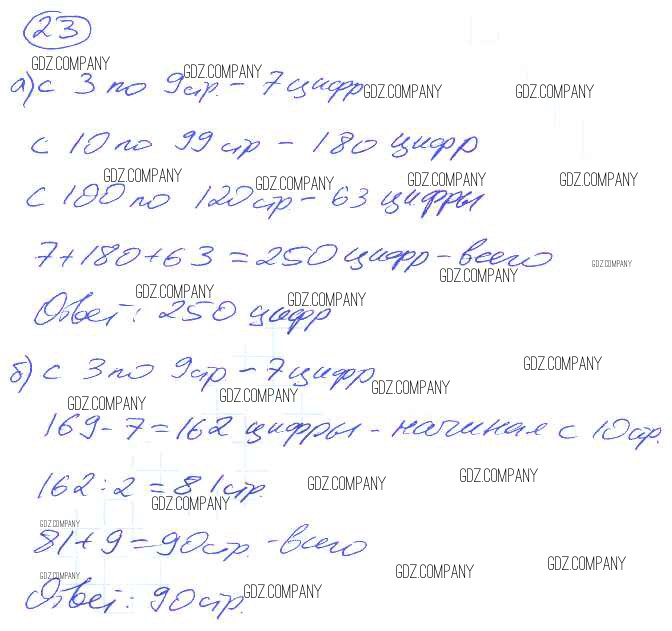 23
GDZ.COMPANY GDZ.COMPANY
а) с 3 по 9 стр. - 7 цифр GDZ.COMPANY GDZ.COMPANY
с 10 по 99 стр - 180 цифр
GDZ.COMPANY GDZ.COMPANY GDZ.COMPANY GDZ.COMPANY
с 100 по 120 стр - 63 цифры
7+180+63=250 цифр - всего GDZ.COMPANY
GDZ.COMPANY
GDZ.COMPANY GDZ.COMPANY
Ответ: 250 цифр
GDZ.COMPANY
б) с 3 по 9 стр - 7 цифр GDZ.COMPANY
GDZ.COMPANY GDZ.COMPANY
169-7=162 цифры - начиная с 10 стр.
162:2=81 стр. GDZ.COMPANY GDZ.COMPANY
GDZ.COMPANY
GDZ.COMPANY
81+9=90 стр. - всего
GDZ.COMPANY GDZ.COMPANY GDZ.COMPANY
Ответ: 90 стр. GDZ.COMPANY